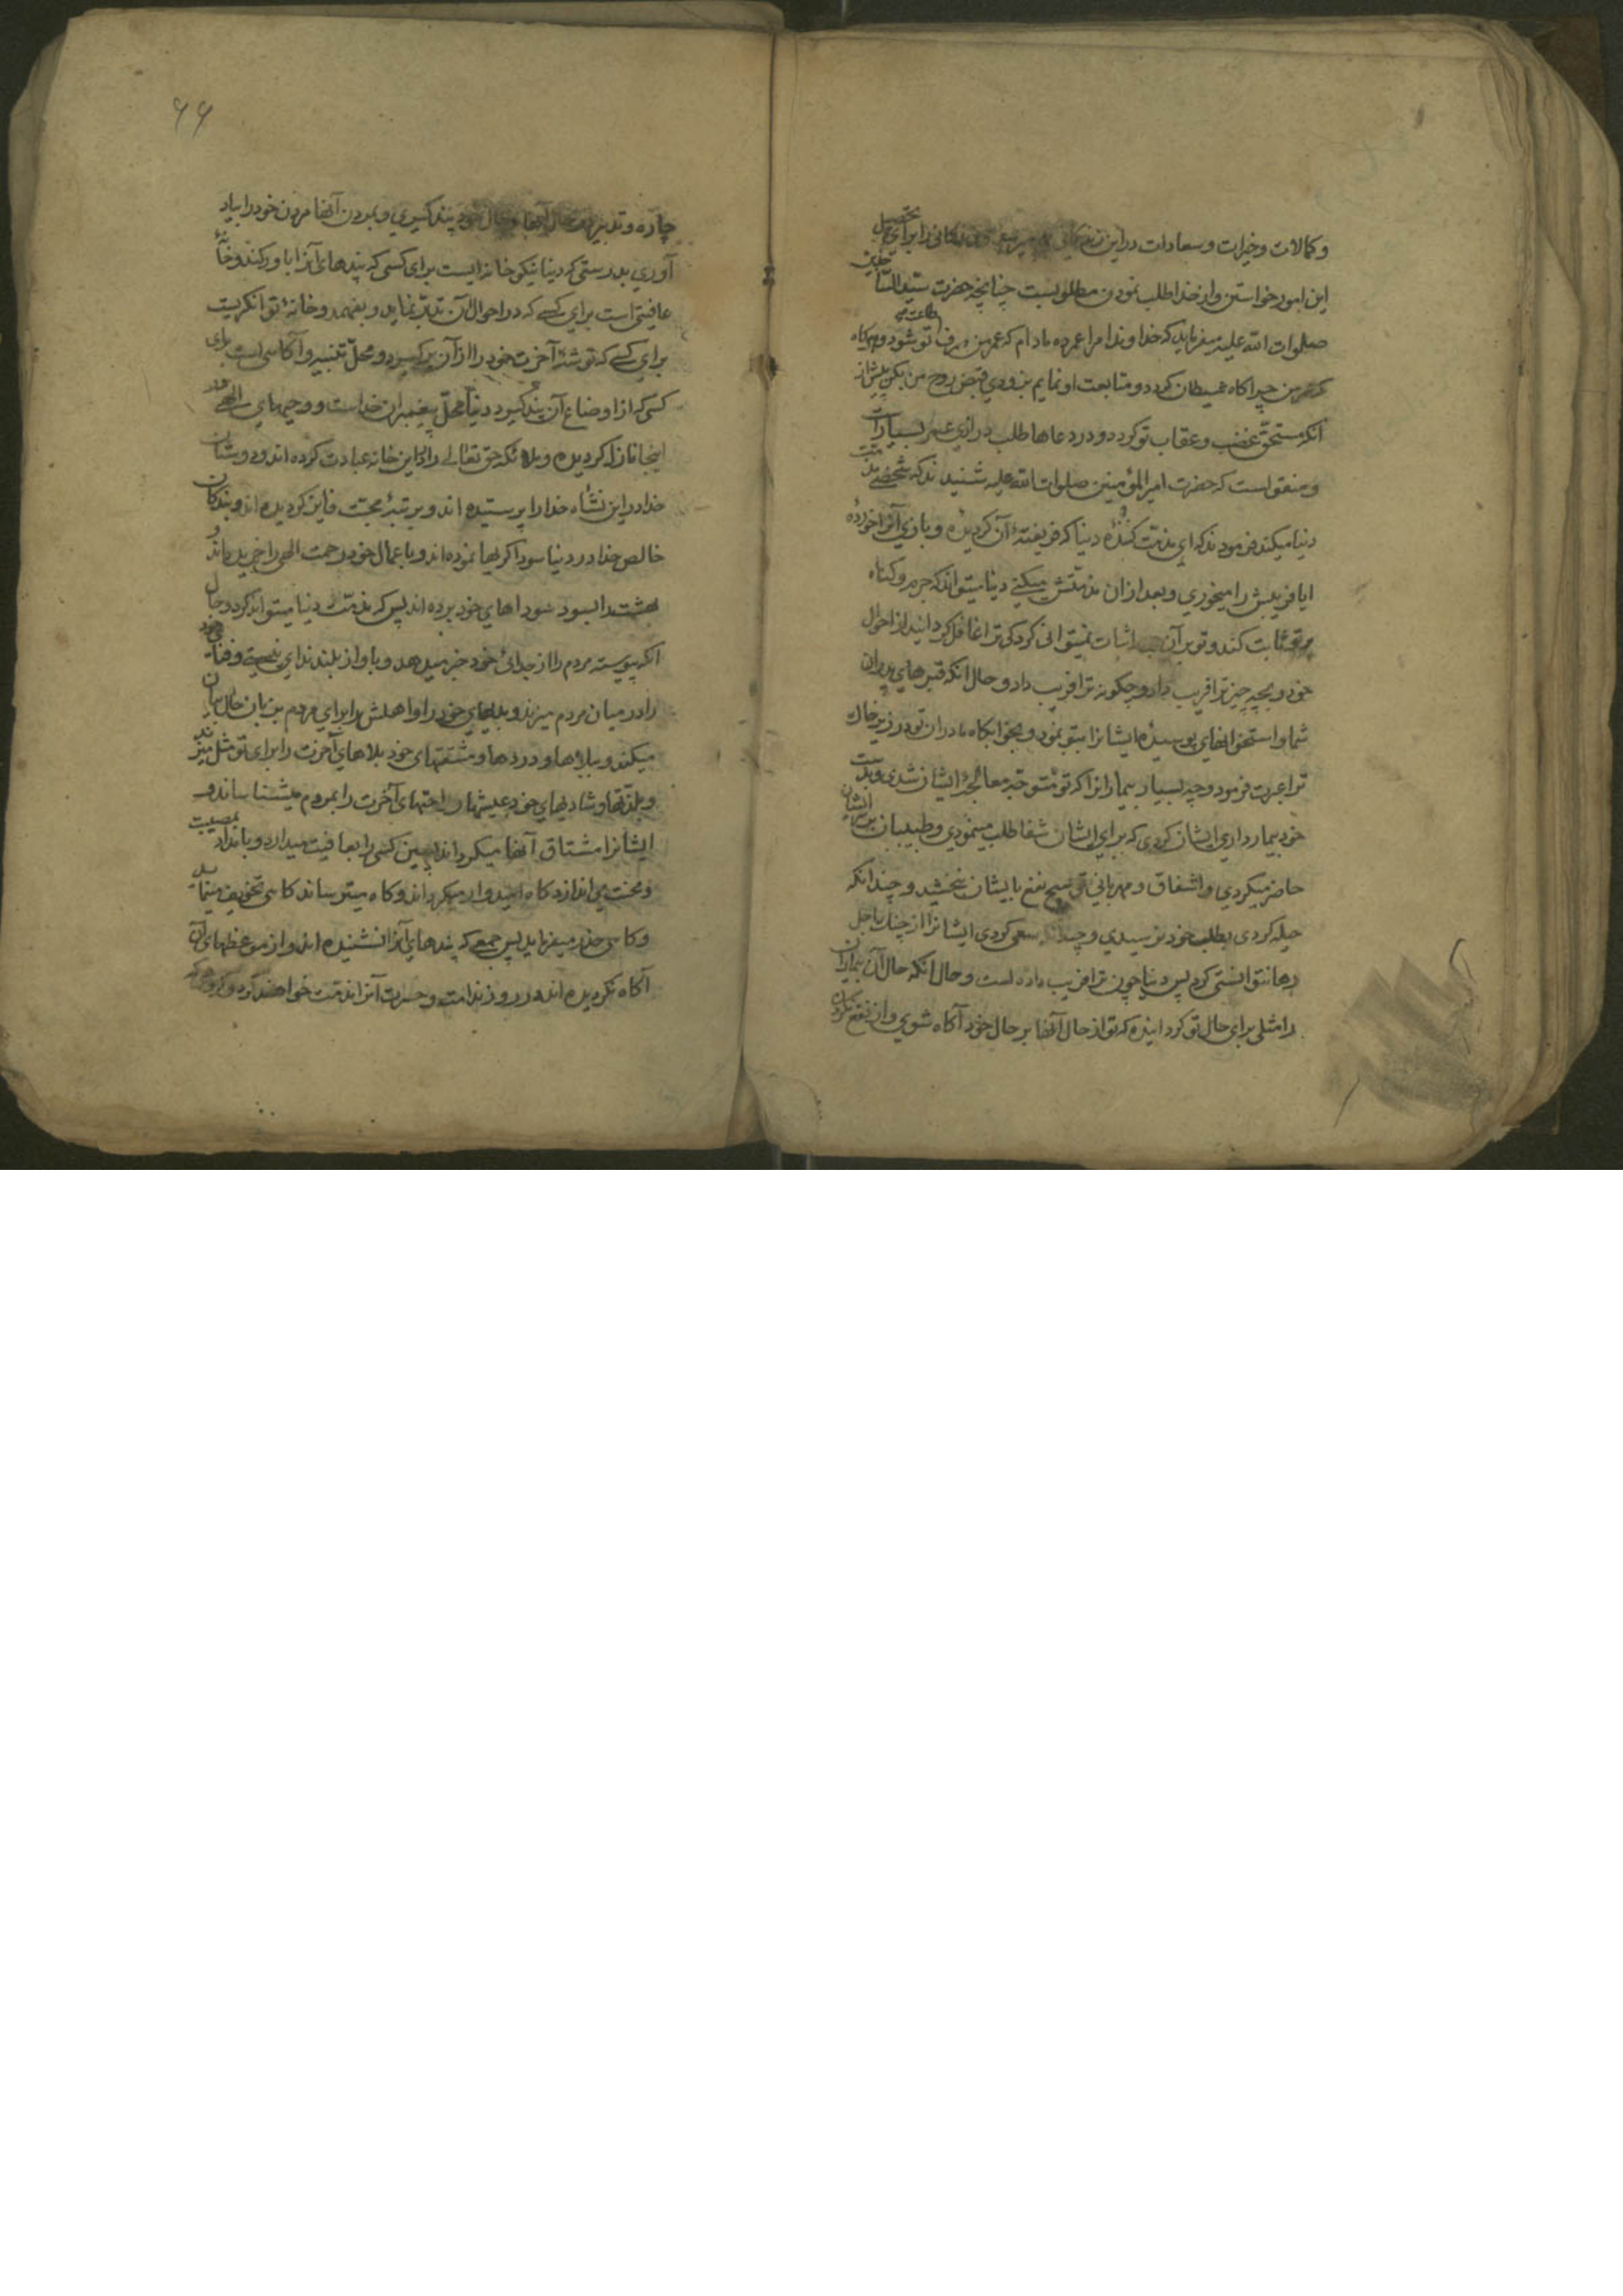 و کمالات و خیرات و سعادات در این زندگانی بهم میرسد و زندگانی را برای تحصیل
این امور خواستن و از خدا طلب نمودن مطلوبست چنانچه حضرت سید الساجدین
صلوات الله علیه میفرماید که خداوندا مرا عمر ده مادام که عمر من صرف طاعت تو شود و هرگاه
عمر من چراگاه شیطان گردد و متابعت او نمایم بزودی قبض روح من بکن پیش از
آنکه مستحق غضب و عقاب تو گردد و در دعاها طلب درازی عمر بسیار است
و منقول است که حضرت امیر المؤمنین صلوات الله علیه شنیدند که شخصی مذمت
دنیا میکند فرمودند که ای مذمت کننده دنیا که فریفتهٔ آن گردیده و بازی آنرا خورده
ایا فریبش را میخوری و بعد از ان مذمتش میکنی دنیا میتواند که جرم و گناه
بر تو ثابت کند و تو بر آن اثبات نمیتوانی کرد کی ترا غافل گردانید از احوال
خود و بچه چیز ترا فریب داد و چگونه ترا فریب داد و حال آنکه قبرهای پدران
شما و استخوانهای پوسیدهٔ ایشانرا بتو نمود و بخوابگاه مادران تو در زیر خاک
ترا عبرت فرمود و چه بسیار بیمارانرا که تو متوجه معالجهٔ ایشان شدی و بدست
خود بیمارداری ایشان کردی که برای ایشان شفا طلب مینمودی و طبیبان بر سر ایشان
حاضر میکردی و اشفاق و مهربانی تو هیچ نفع بایشان نبخشید و چندانکه
حیله کردی بطلب خود نرسیدی و چندانکه سعی کردی ایشانرا از چنگ اجل
رها نتوانستی کرد پس دنیا چون ترا فریب داده است و حال آنکه حال آن بیماران
را مثلی برای حال تو گردانیده که تو از حال آنها بر حال خود آگاه شوی و از نفع نکردن
۶۶
چاره و تدبیر در حال آنها بحال خود پند گیری و بمردن آنها مردن خود را بیاد
آوری بدرستی که دنیا نیکو خانه‌ایست برای کسی که پندهای آنرا باور کند و خانهٔ
عافیتی است برای کسی که در احوال آن تدبر نماید و بفهمد و خانهٔ توانگریست
برای کسی که توشهٔ آخرت خود را از آن برگیرد و محل تنبیه و آگاهی است برای
کسی که از اوضاع آن پند گیرد دنیا محل پیغمبران خداست و وحیهای الهی در
اینجا نازل گردیده و ملائکه حق تعالی را در این خانه عبادت کرده‌اند و دوستان
خدا در این نشأه خدا را پرستیده‌اند و برتبهٔ محبت فایز گردیده‌اند و بندگان
خالص خدا در دنیا سوداگریها نموده‌اند و باعمال خود رحمت الهی را خریده‌اند و
بهشت را بسود سوداهای خود برده‌اند پس که مذمت دنیا میتواند کرد و حال
آنکه پیوسته مردم را از جدائی خود خبر میدهد و باواز بلند ندای نیستی و فنای خود
را در میان مردم میزند و بدیهای خود را و اهلش را برای مردم بزبان حال بیان
میکند و ببلاها و دردها و مشقتهای خود بلاهای آخرت را برای تو مثل میزند
و بلذتها و شادیهای خود عیشها و راحتهای آخرت را بمردم میشناساند و
ایشانرا مشتاق آنها میگرداند پسین کسی را بعافیت میدارد و بامداد بمصیبت
و محنت می‌اندازد گاه امیدوار میگرداند و گاه میترساند گاهی تخویف مینماید
و گاهی حذر میفرماید پس جمعی که پندهای آنرا نشنیده‌اند و از موعظهای آن
آگاه نگردیده‌اند در روز ندامت و حسرت آنرا مذمت خواهند کرد و گروهی که